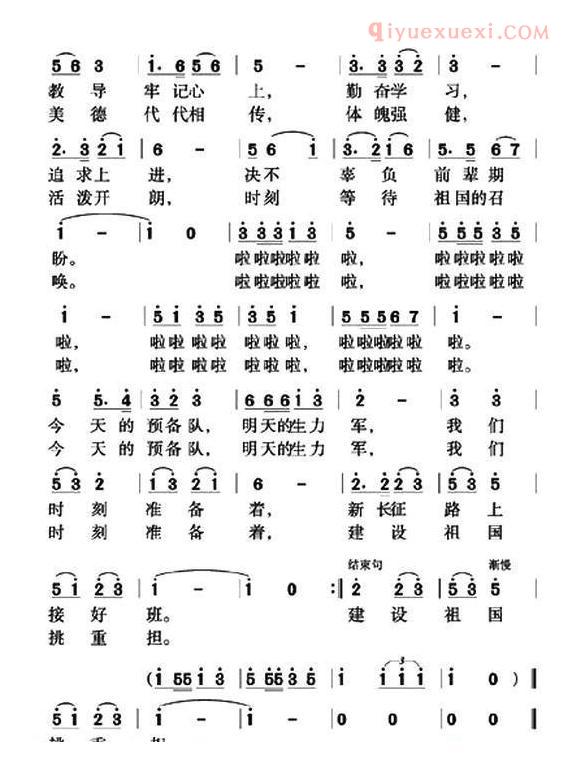 qiyuexuexi.com
5 6 3 | 1· 6 5 6 | 5 - | 3· 3 3 2 | 3 - |
教 导 牢 记心 上， 勤 奋学 习，
美 德 代 代相 传， 体 魄强 健，
2· 3 2 1 | 6 - | 5 6 1 | 3· 2 1 | 5· 5 6 7 |
追 求上 进， 决不 辜 负 前 辈 期
活 泼开 朗， 时刻 等 待 祖 国的 召
1 - | 1 0 | 3 3 3 1 3 | 1 - | 5 5 5 3 5 |
盼。 啦 啦啦啦啦 啦， 啦 啦啦啦啦
唤。 啦 啦啦啦啦 啦， 啦 啦啦啦啦
1 - | 5 1 3 5 | 3 5 1 | 5 5 5 6 7 | 1 - |
啦， 啦 啦 啦 啦 啦 啦 啦， 啦啦啦啦啦 啦。
啦， 啦 啦 啦 啦 啦 啦 啦， 啦啦啦啦啦 啦。
5 5· 4 | 3 2 3 | 6 6 6 1 3 | 2 - | 3 3 |
今 天 的 预 备 队， 明天的生 力 军， 我 们
今 天 的 预 备 队， 明天的生 力 军， 我 们
5 3 2 | 1 3 2 1 | 6 - | 2· 2 2 3 | 5 3 5 |
时 刻 准 备 着， 新 长征 路 上
时 刻 准 备 着， 建 设 祖 国
结束句 渐慢
5 1 2 3 | 1 - | 1 0 :‖ 2 2 3 | 5 3 5 |
接 好 班。 建 设 祖 国
挑 重 担。
(1 5 5 1 3 | 5 5 5 3 5 | 1 1 1 1 | 1 0 )‖
3
5 1 2 3 | 1 - | 1 - | 0 0 | 0 0 ‖
挑 重 担。